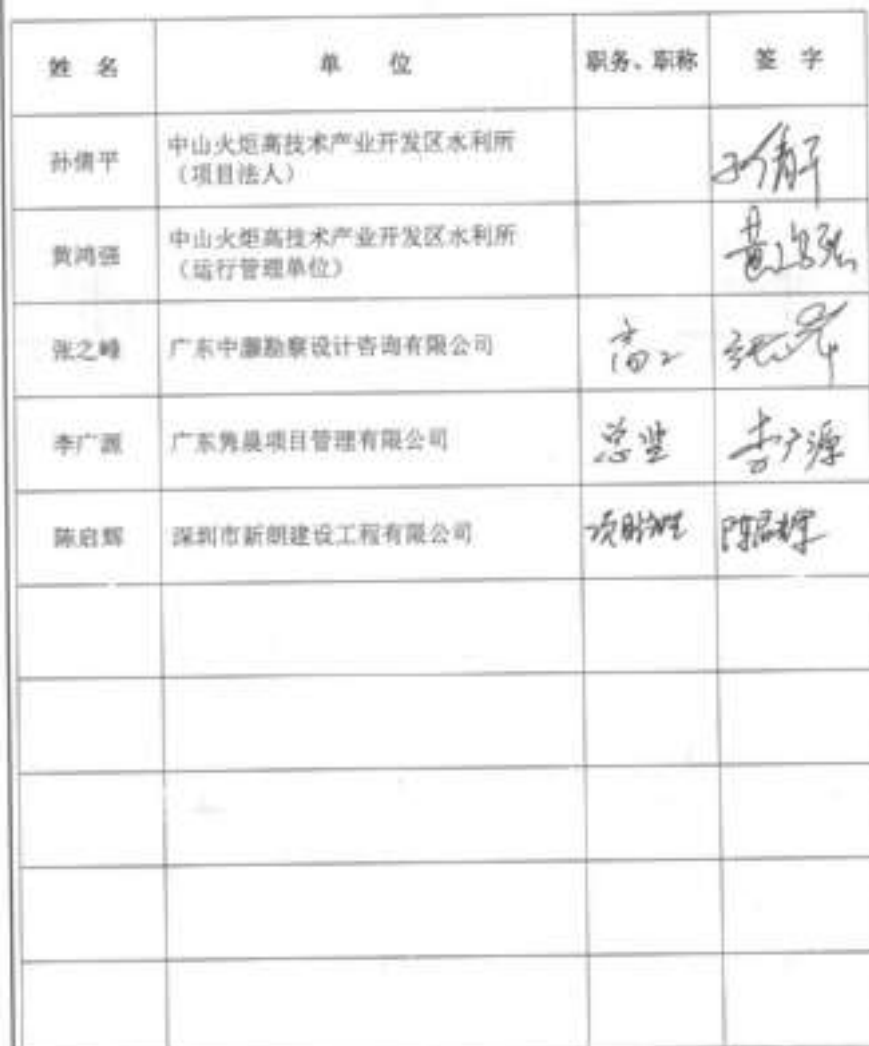 姓 名 单 位 职务、职称 签 字
孙倩平 中山火炬高技术产业开发区水利所
（项目法人） 孙倩平
黄鸿强 中山火炬高技术产业开发区水利所
（运行管理单位） 黄鸿强
张之峰 广东中灏勘察设计咨询有限公司 高工 张之峰
李广源 广东隽晟项目管理有限公司 总监 李广源
陈启辉 深圳市新朗建设工程有限公司 陈启辉